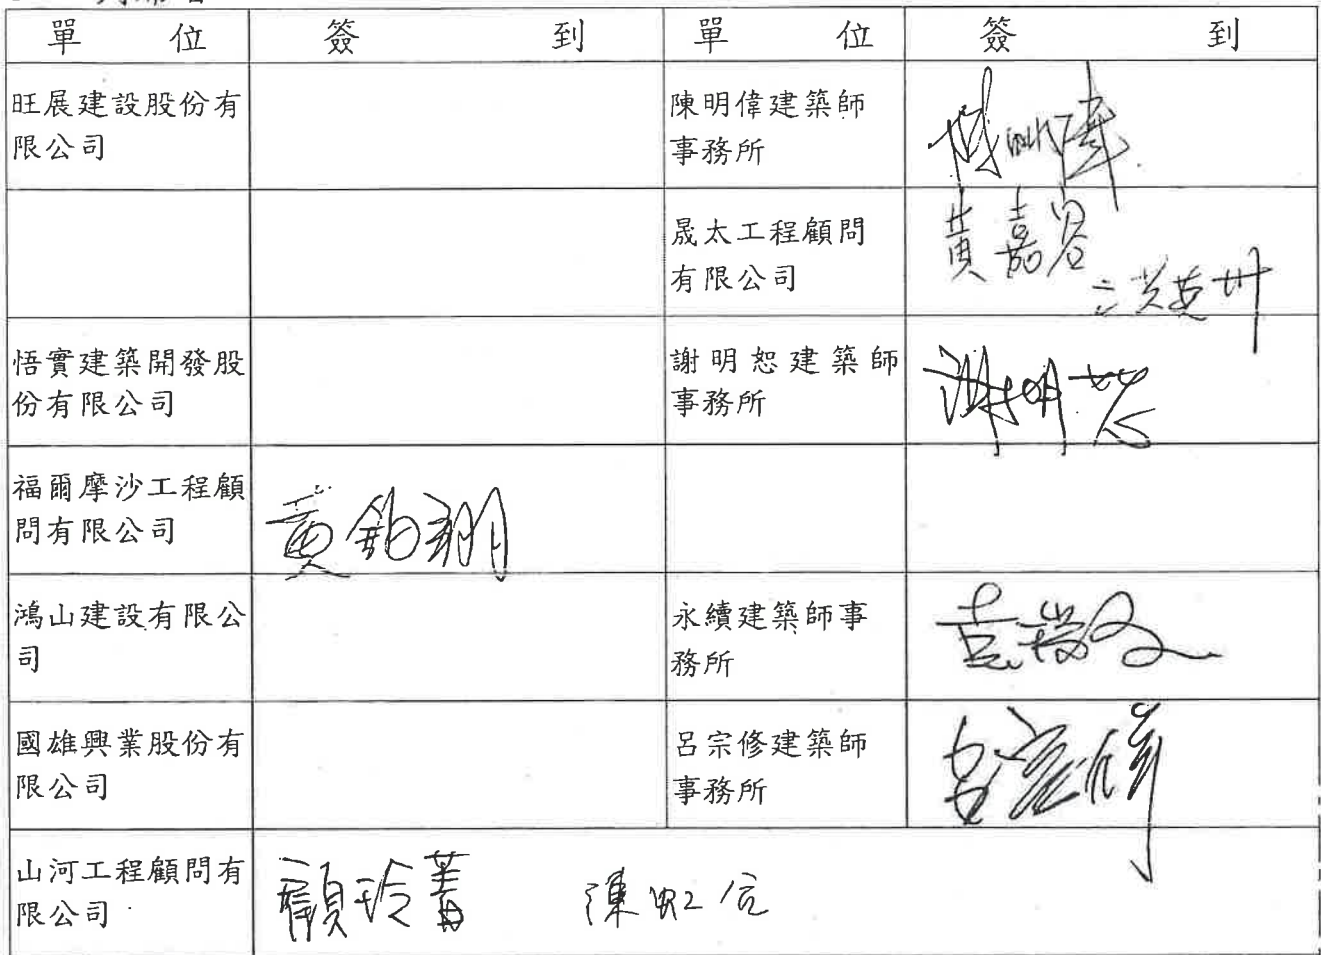 單 位 簽 到 單 位 簽 到
旺展建設股份有
限公司
陳明偉建築師
事務所
陳明偉
晟太工程顧問
有限公司
黃嘉容
悟實建築開發股
份有限公司
謝明恕建築師
事務所
謝明恕
福爾摩沙工程顧
問有限公司
黃鈞翔
鴻山建設有限公
司
永續建築師事
務所
國雄興業股份有
限公司
呂宗修建築師
事務所
呂宗修
山河工程顧問有
限公司
顏玲蓁 陳虹信